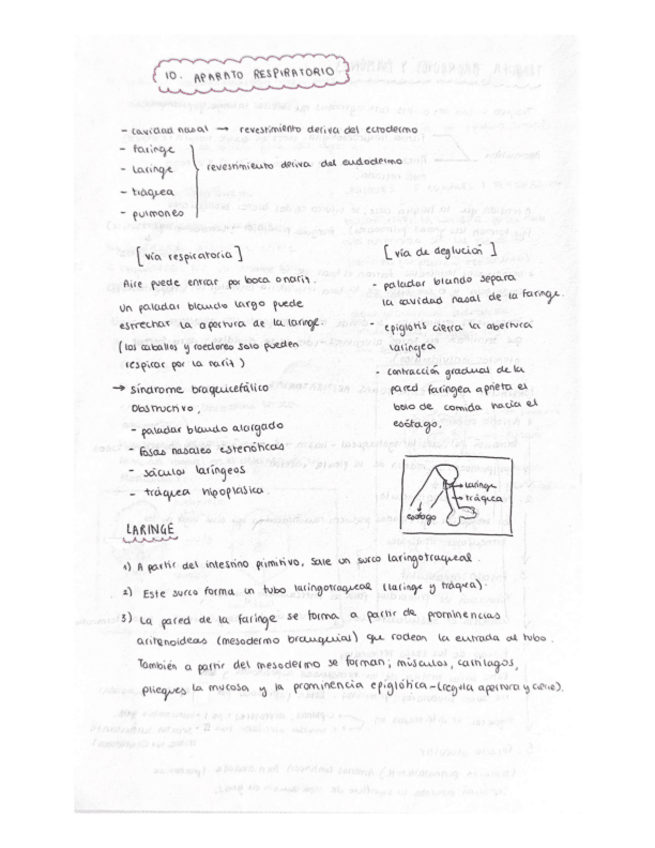 10. APARATO RESPIRATORIO
- cavidad nasal → revestimiento deriva del ectodermo
- faringe
- laringe
- tráquea
- pulmones
revestimiento deriva del endodermo
[vía respiratoria]
Aire puede entrar por boca o nariz.
Un paladar blando largo puede
estrechar la apertura de la laringe.
(los caballos y roedores solo pueden
respirar por la nariz)
→ síndrome braquicefálico
obstructivo,
- paladar blando alargado
- fosas nasales estenóticas
- sáculos laríngeos
- tráquea hipoplásica.
[vía de deglución]
- paladar blando separa
la cavidad nasal de la faringe.
- epiglotis cierra la abertura
laríngea
- contracción gradual de la
pared faríngea aprieta el
bolo de comida hacia el
esófago.
laringe
tráquea
esófago
LARINGE
1) A partir del intestino primitivo, sale un surco laringotraqueal.
2) Este surco forma un tubo laringotraqueal (laringe y tráquea).
3) La pared de la faringe se forma a partir de prominencias
aritenoideas (mesodermo branquial) que rodean la entrada al tubo.
También a partir del mesodermo se forman; músculos, cartílagos,
pliegues la mucosa y la prominencia epiglótica-(regula apertura y cierre).